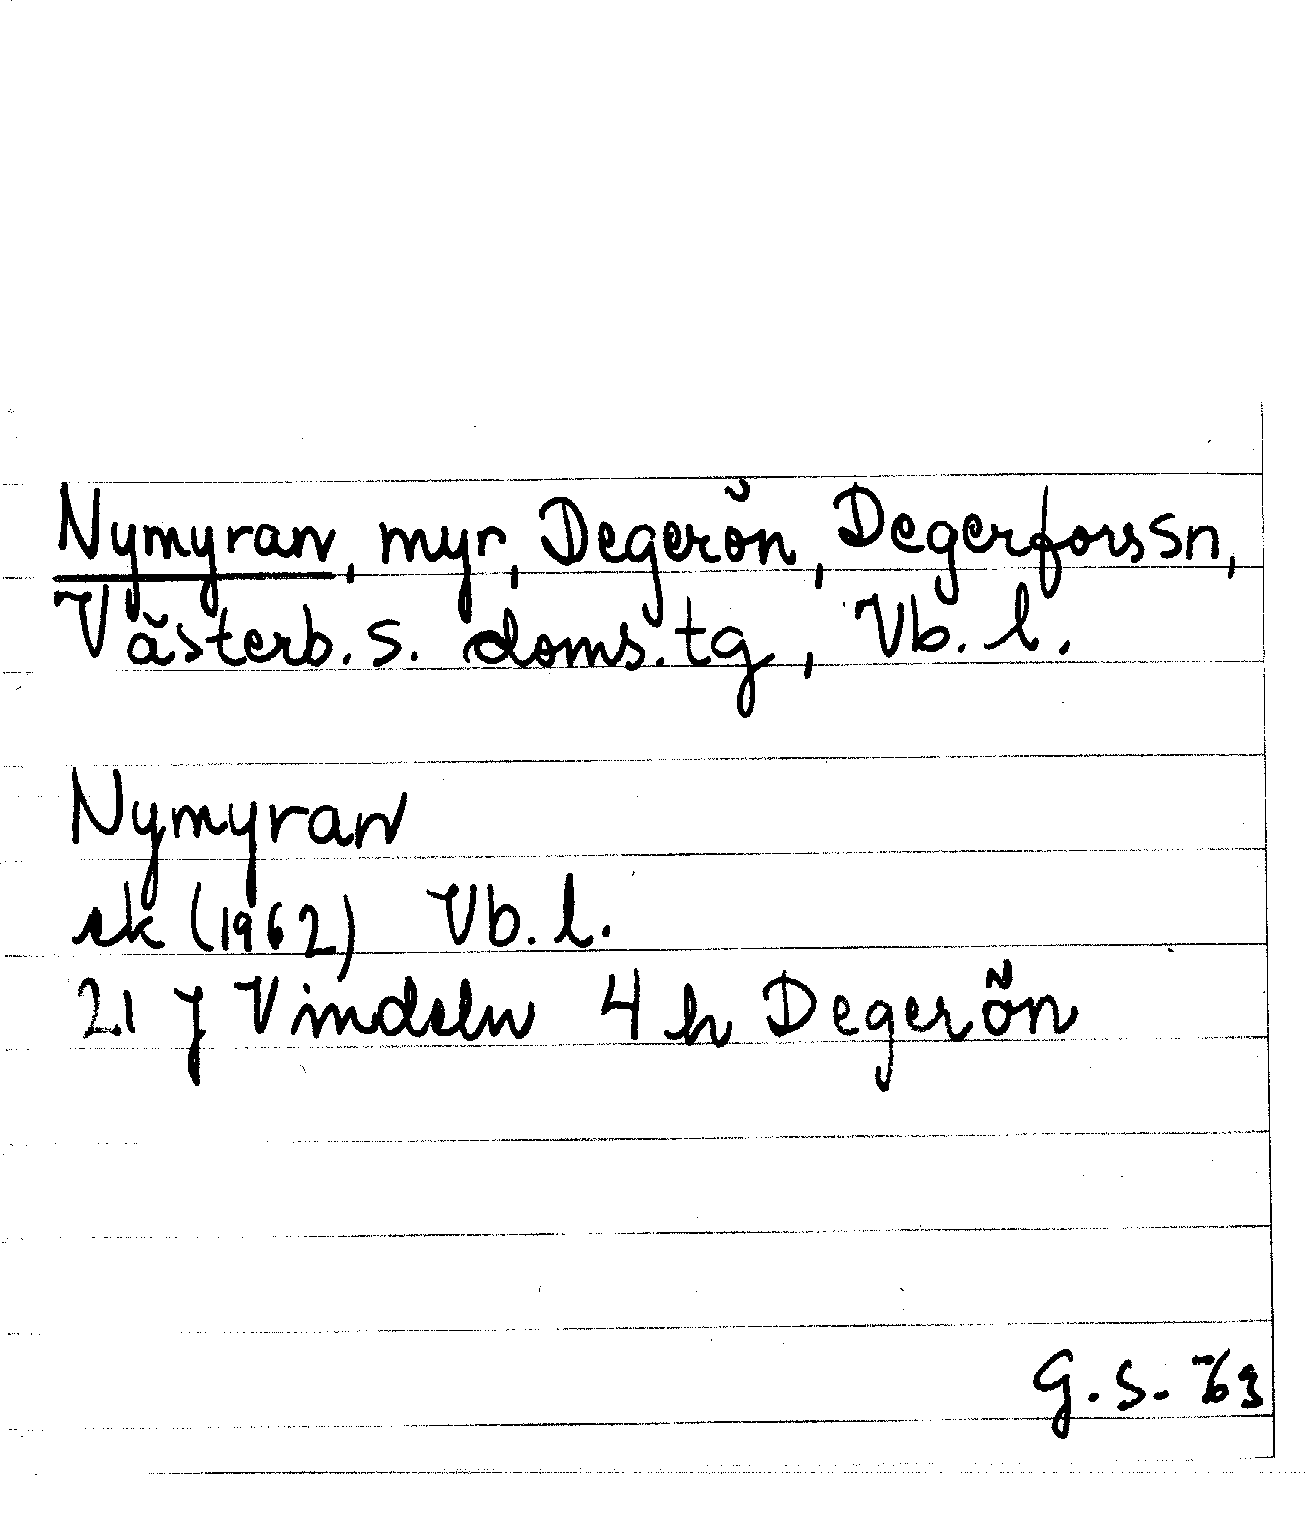 Nymyran, myr, Degerön, Degerfors sn,
Västerb. s. doms. tg, Vb. l.
Nymyran
ek (1962) Vb. l.
21 J Vindeln 4 h Degerön
G. S. 63